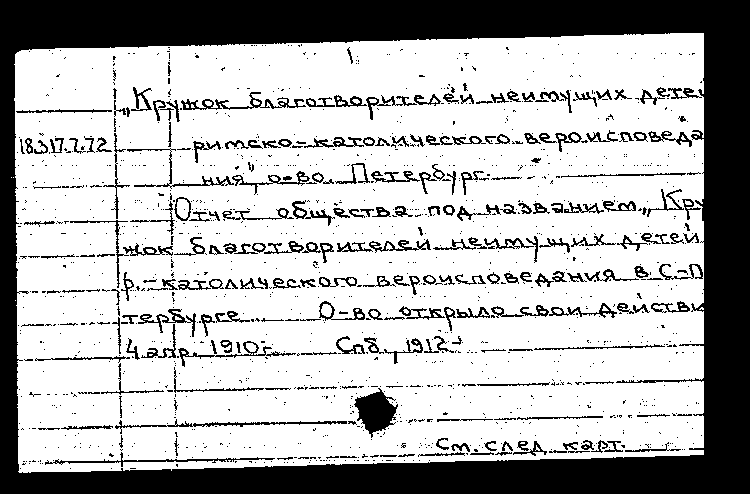 „Кружок благотворителей неимущих детей
18.317.7.72 римско-католического вероисповеда
ния", о-во. Петербург.
Отчет общества под названием „Кру
жок благотворителей неимущих детей
р.-католического вероисповедания в С-П
тербурге... О-во открыло свои действи
4 апр. 1910 г. Спб., 1912-
См. след карт.